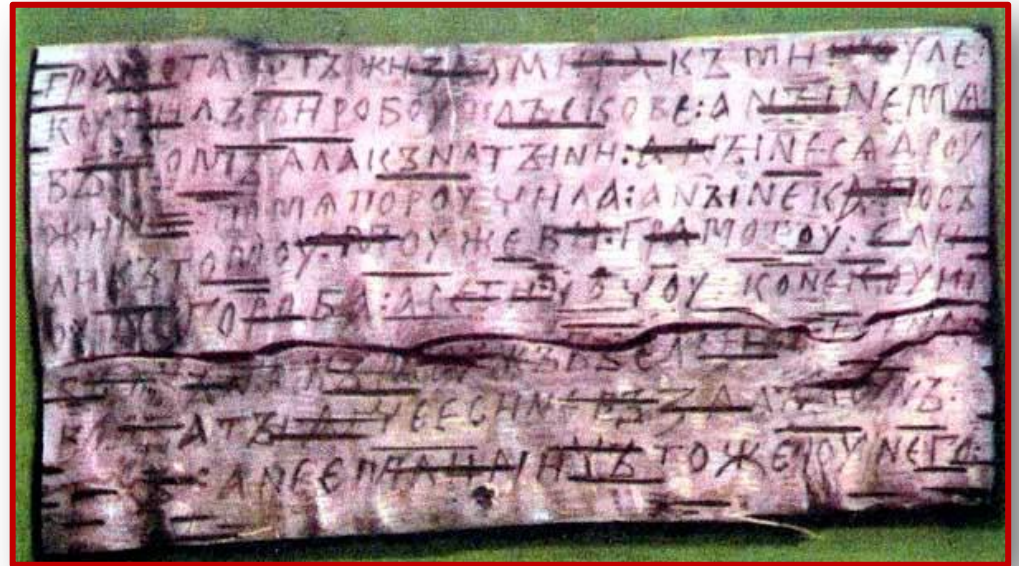 ГРАМОТА : ѠТЪ ЖИЗНОМИРА : КЪ МИКОУЛЕ :
КОУПИЛЪ ЕСИ : РОБОУ : ПЛЪСКОВЕ : А НЪІНЕ МѦ
ВЪ ТОМЪ : ѦЛА КЪНѦГЪІНИ : А НЪІНЕ СѦ ДРОУ
ЖИНА : ПО МѦ ПОРОУЧИЛА : А НЪІНЕ КА : ПОСЪ
ЛИ КЪ ТОМОУ : МОУЖЕВИ : ГРАМОТОУ : Е ЛИ
ОУ НЕГО РОБА : А СЕ ТИ ХОЧОУ : КОНЕ КОУПИ
МОУЖЪ ВЪСАДИВЪ
А ТЪІ АТЧЕ ЕСИ НЕ ВЪЗАЛЪ КОУНЪ :
ТЕХЪ : А НЕ ЕМЛИ : НИЧЪТО ЖЕ ОУ НЕГО :